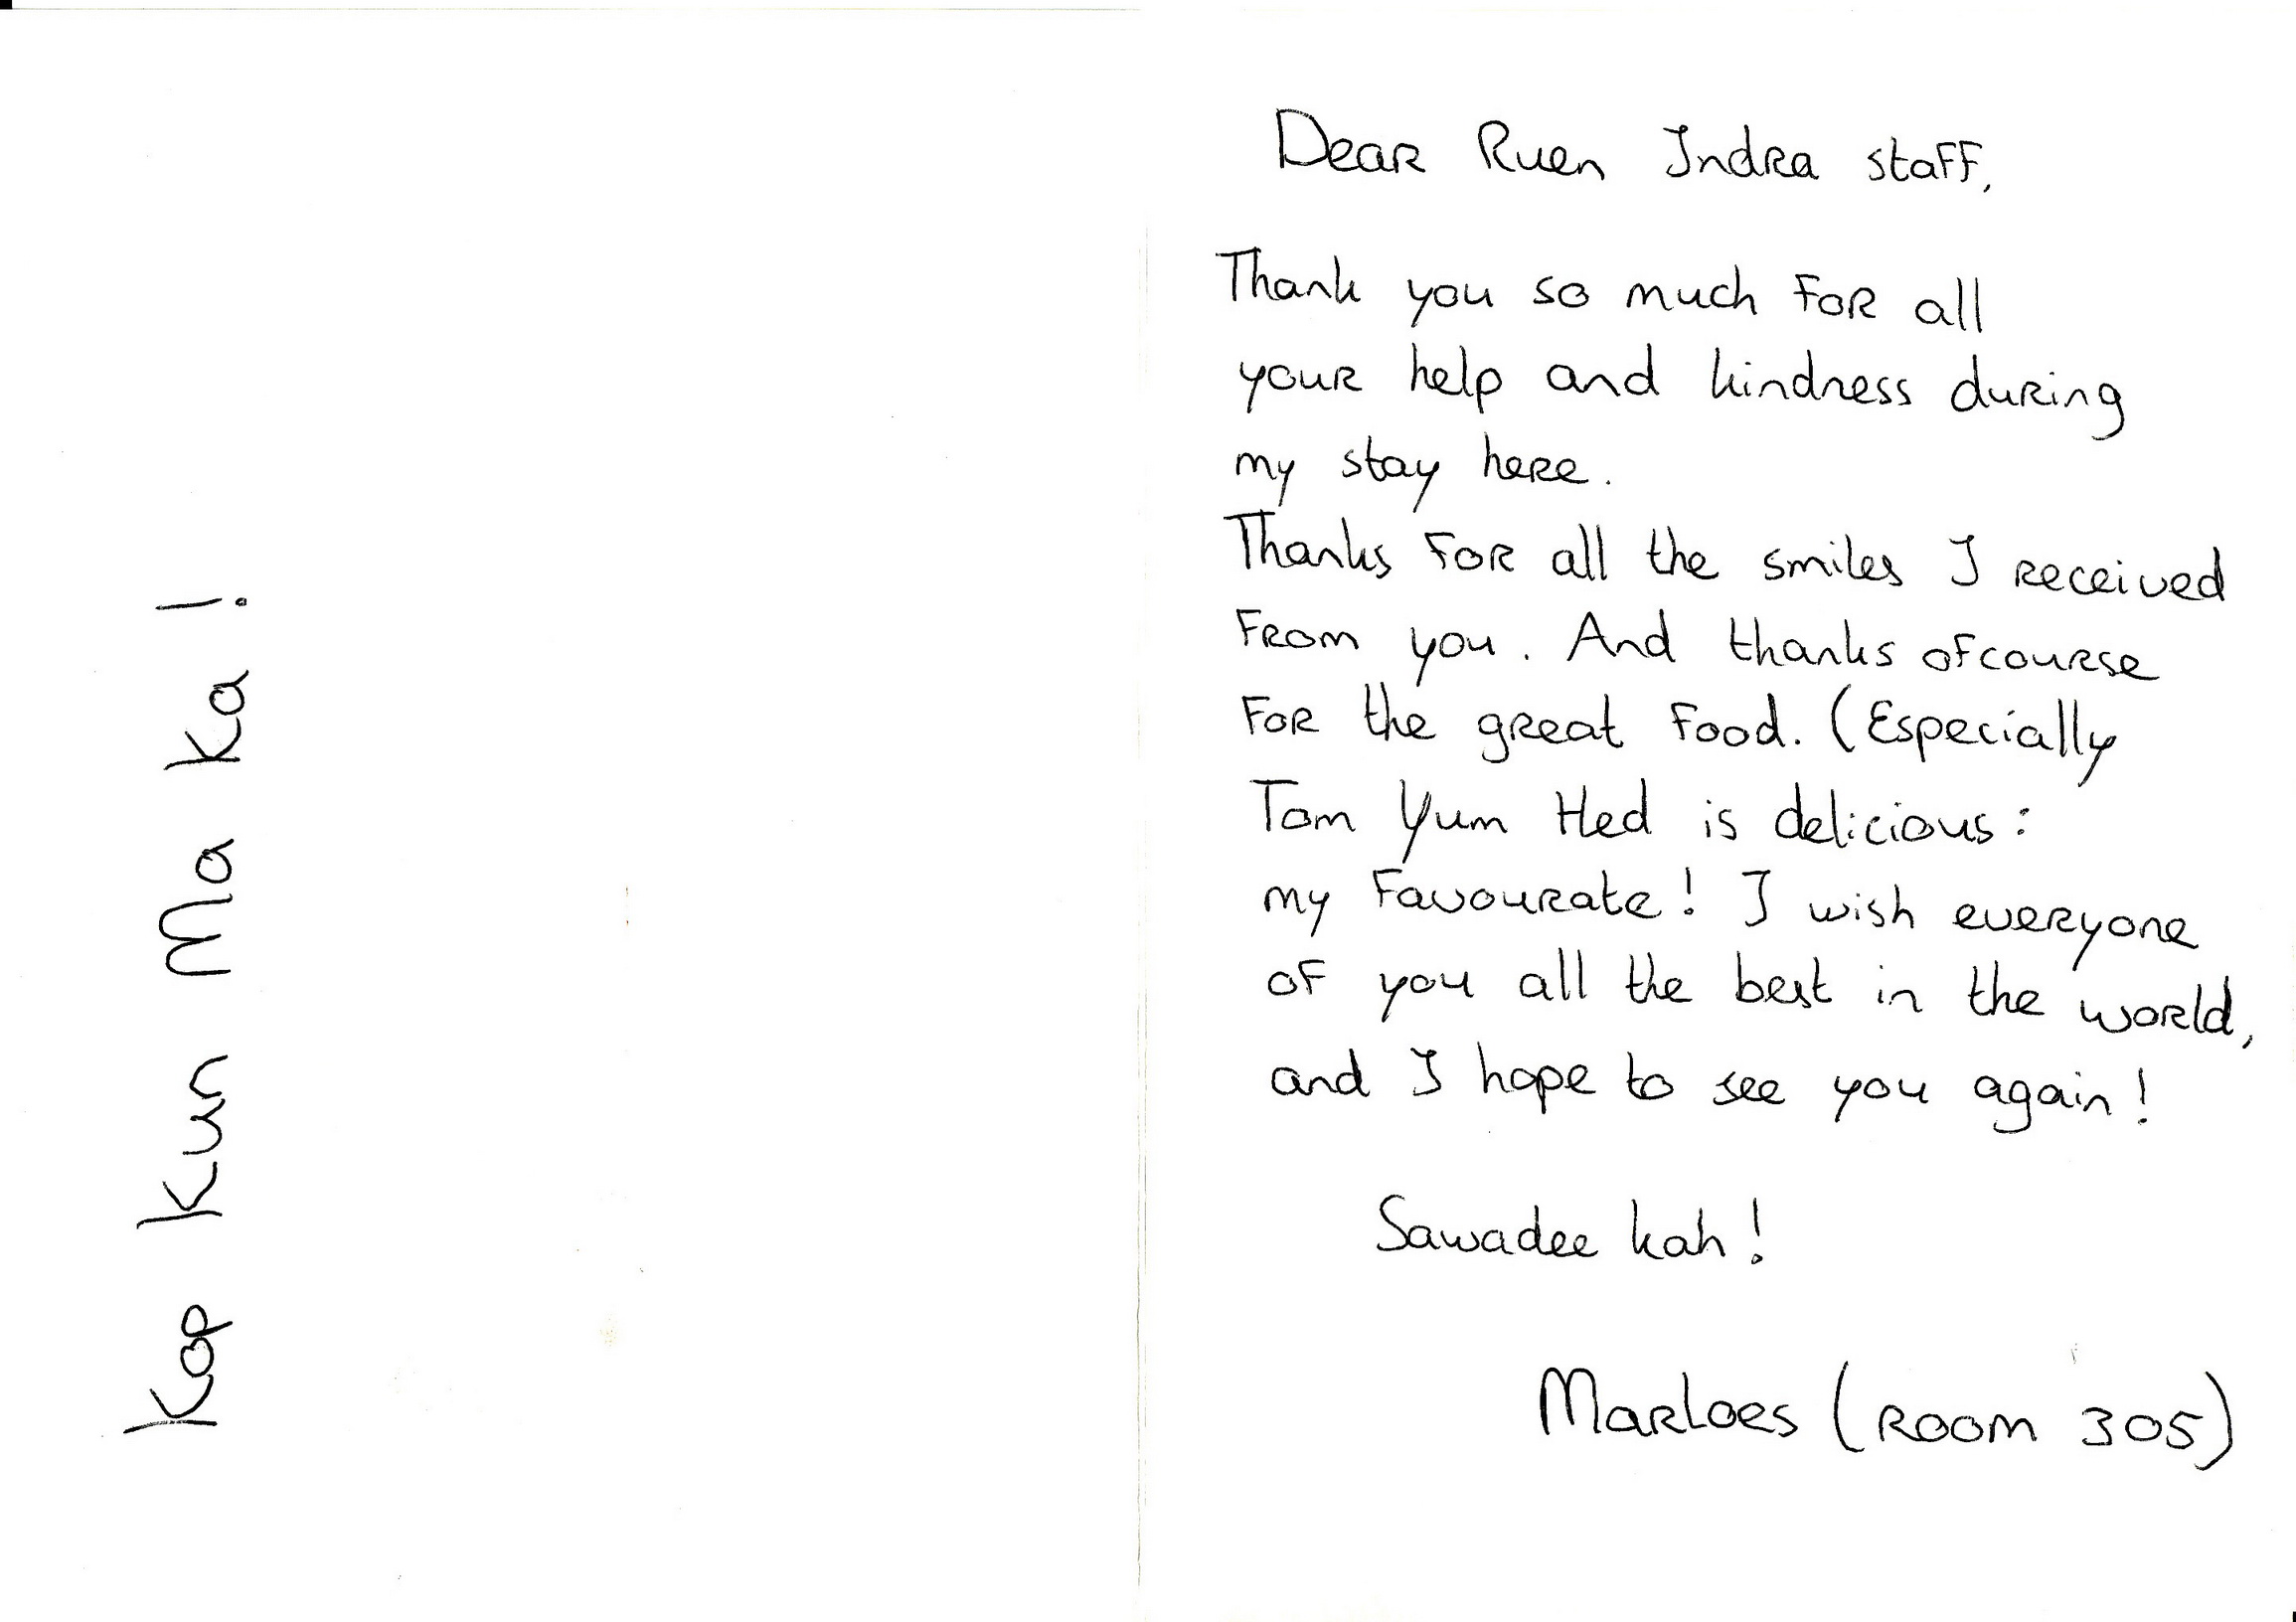 Kop Kun Ma Ka!
Dear Ruen Indra staff,
Thank you so much for all
your help and kindness during
my stay here.
Thanks for all the smiles I received
from you. And thanks ofcourse
for the great food. (Especially
Tom Yum Hed is delicious:
my favourate! I wish everyone
of you all the best in the world,
and I hope to see you again!
Sawadee kah!
Marloes (room 305)